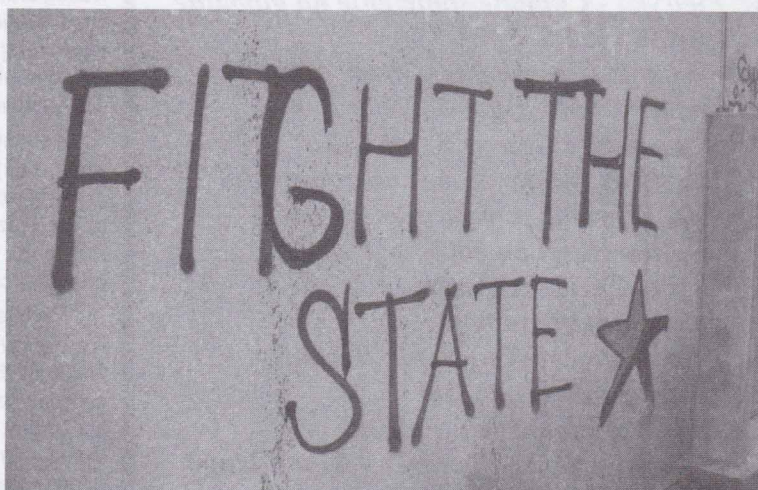 FITGHT THE
STATE